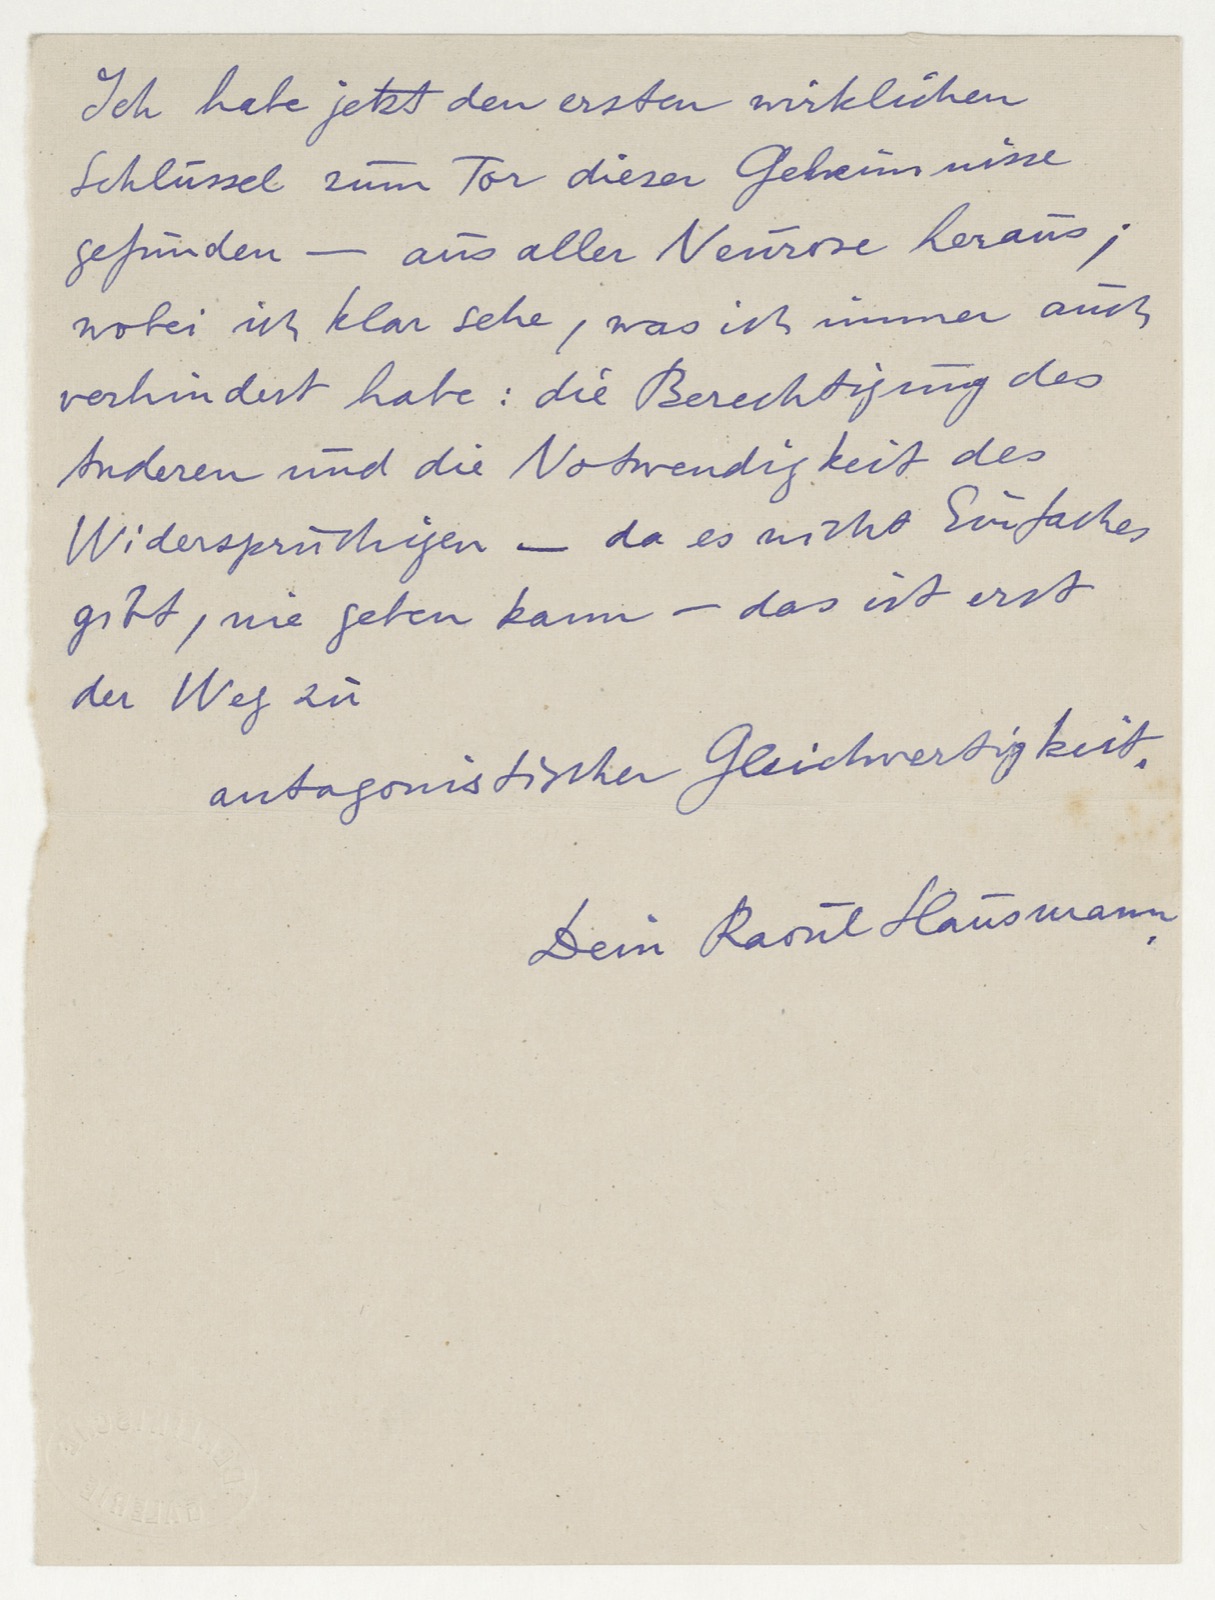 Ich habe jetzt den ersten wirklichen
Schlüssel zum Tor dieser Geheimnisse
gefunden — aus aller Neurose heraus;
wobei ich klar sehe, was ich immer auch
verhindert habe: die Berechtigung des
Anderen und die Notwendigkeit des
Widersprüchigen — da es nicht Einfaches
gibt, nie geben kann — das ist erst
der Weg zu
antagonistischer Gleichwertigkeit.
Dein Raoul Hausmann.
GALERIE